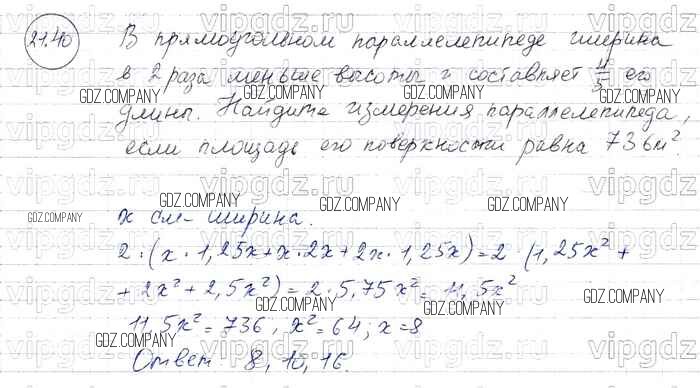 21.40 В прямоугольном параллелепипеде ширина
в 2 раза меньше высоты и составляет 4/5 его
длины. Найдите измерения параллелепипеда,
если площадь его поверхности равна 736 м².
x см - ширина.
2·(x·1,25x+x·2x+2x·1,25x)=2·(1,25x²+
+2x²+2,5x²)=2·5,75x²=11,5x²
11,5x²=736, x²=64; x=8
Ответ: 8, 10, 16.
GDZ.COMPANY
vipgdz.ru